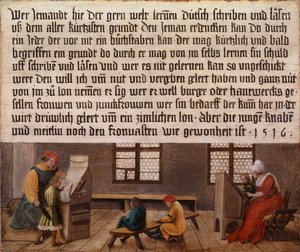 Wer Jemandt hie der gern welt lernen Dütsch schriben und läsen
uß dem aller kürtzisten grundt den Jeman erdencken kan Do durch
ein jeder der vor nit ein büchstaben kan der mag kürtzlich und bald
begriffen ein grundt do durch er mag von jm selbs lernen sin schuld
uff schribē und läsen und wer es nit gelernen kan so ungeschickt
were den will jch um nüt und vergeben gelert haben und gantz nüt
von jm zu lon nemen er sig wer er well burger oder hantwercks ge-
sellen frouwen und junckfrouwen wer sin bedarff der kum har jn der
wirt drüwlich gelert um ein zimlichen lon. Aber die jungē knabē
und meitlin noch den fronuasten wie gewonheit ist. 1516.